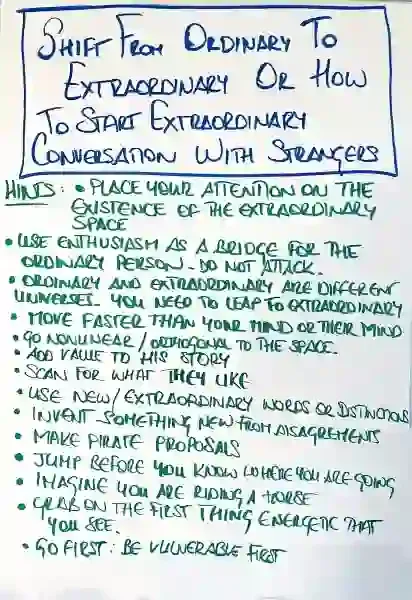 SHIFT FROM ORDINARY TO
EXTRAORDINARY OR HOW
TO START EXTRAORDINARY
CONVERSATION WITH STRANGERS
HINTS: • PLACE YOUR ATTENTION ON THE
EXISTENCE OF THE EXTRAORDINARY
SPACE
• USE ENTHUSIASM AS A BRIDGE FOR THE
ORDINARY PERSON - DO NOT ATTACK.
• ORDINARY AND EXTRAORDINARY ARE DIFFERENT
UNIVERSES. YOU NEED TO LEAP TO EXTRAORDINARY
• MOVE FASTER THAN YOUR MIND OR THEIR MIND
• GO NONLINEAR / ORTHOGONAL TO THE SPACE.
• ADD VALUE TO HIS STORY
• SCAN FOR WHAT THEY LIKE
• USE NEW/EXTRAORDINARY WORDS OR DISTINCTIONS
• INVENT SOMETHING NEW FROM DISAGREMENTS
• MAKE PIRATE PROPOSALS
• JUMP BEFORE YOU KNOW WHERE YOU ARE GOING
• IMAGINE YOU ARE RIDING A HORSE
• GRAB ON THE FIRST THING ENERGETIC THAT
YOU SEE.
• GO FIRST: BE VULNERABLE FIRST